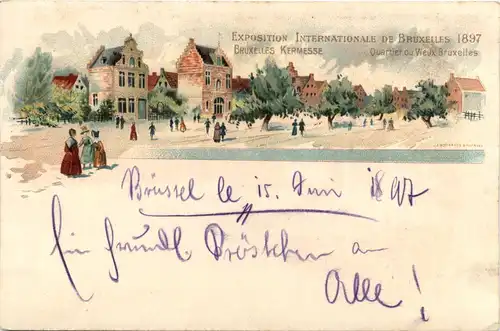 EXPOSITION INTERNATIONALE DE BRUXELLES 1897
BRUXELLES KERMESSE Quartier du Vieux Bruxelles
Brüssel le 15. Juni 1897
Ein freundl. Pröstchen an
Alle!